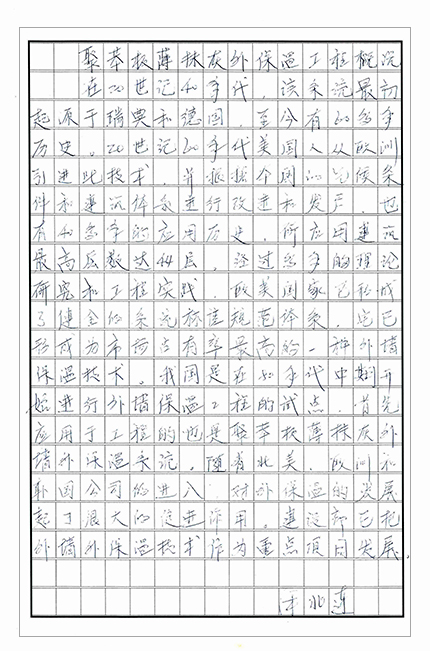 聚苯板薄抹灰外保温工程概况
在20世记40年代，该系统最初
起原于瑞典和德国，至今有60多年
历史。20世记60年代美国人从欧洲
引进此技术，并根据个国的气候条
件和建筑体系进行改进和发产，也
有40多年的应用历史，所应用建筑
最高层数达44层，经过多年的理论
研究和工程实践，欧美国家已形成
了健全的系统标准规范体系，它已
形成为市场占有率最高的一种外墙
保温技术。我国是在80年代中期开
始进行外墙保温工程的试点，首先
应用于工程的也是聚苯板薄抹灰外
墙外保温系统，随着北美、欧洲和
韩国公司的进入，对外保温的发展
起了很大的促进作用，建设部已把
外墙外保温技术作为重点项目发展。